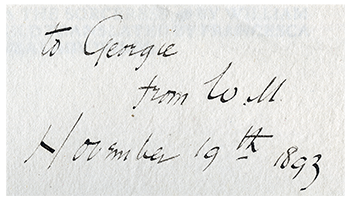 to Georgie
from W.M.
November 19th 1893